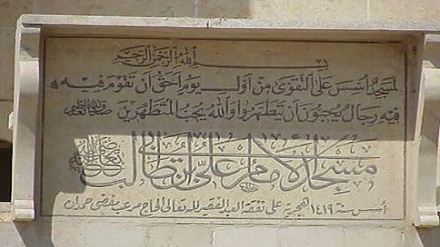 بسم الله الرحمن الرحيم
لمسجد أسس على التقوى من أول يوم أحق أن تقوم فيه
فيه رجال يحبون أن يتطهروا والله يحب المتطهرين
مسجد الإمام علي بن أبي طالب
أسس سنة ١٤١٩ هجرية على نفقة العبد الفقير لله تعالى الحاج مرعب مفضي حمدان